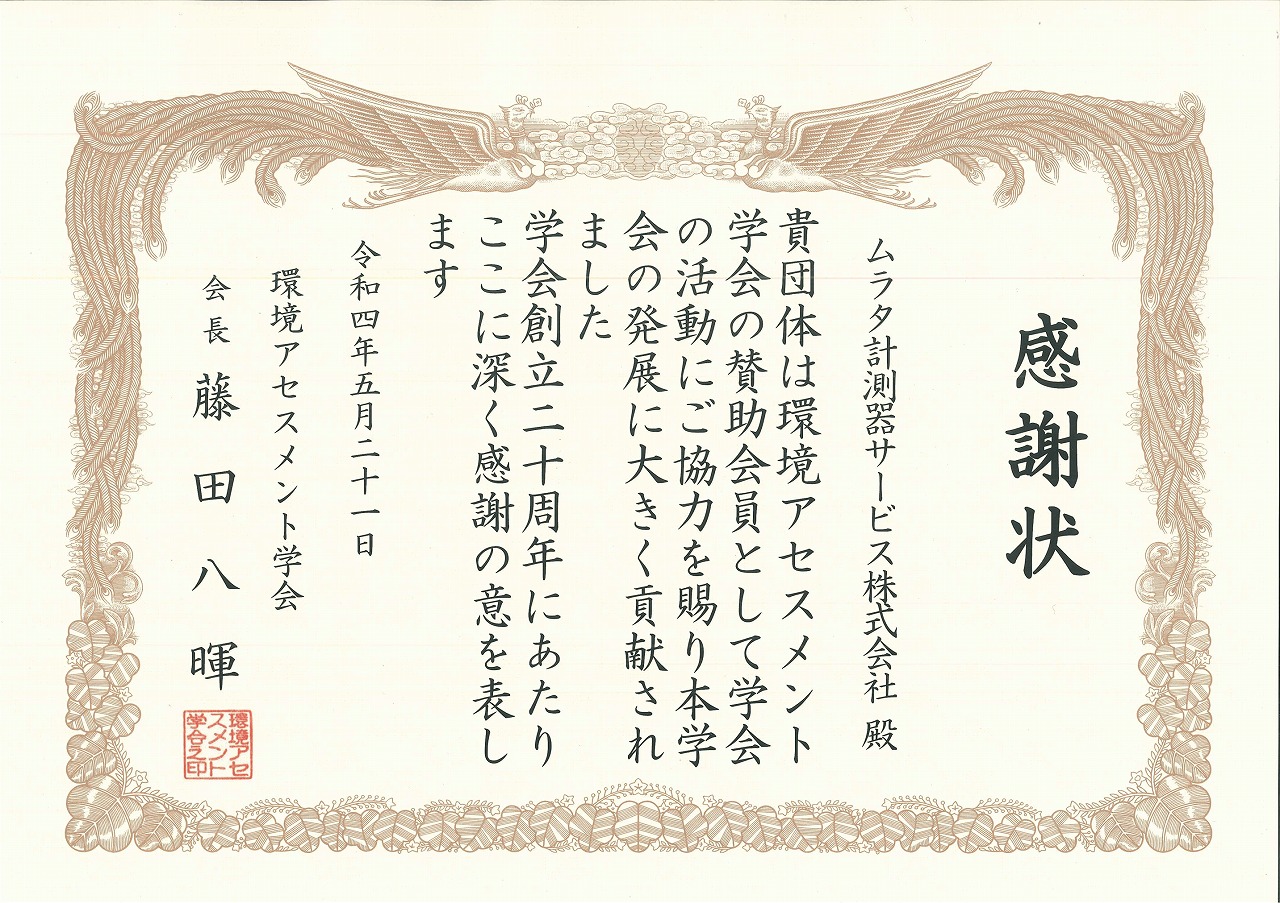 感謝状
ムラタ計測器サービス株式会社 殿
貴団体は環境アセスメント
学会の賛助会員として学会
の活動にご協力を賜り本学
会の発展に大きく貢献され
ました
学会創立二十周年にあたり
ここに深く感謝の意を表し
ます
令和四年五月二十一日
環境アセスメント学会
会長 藤田八暉
環境アセ
スメント
学会之印